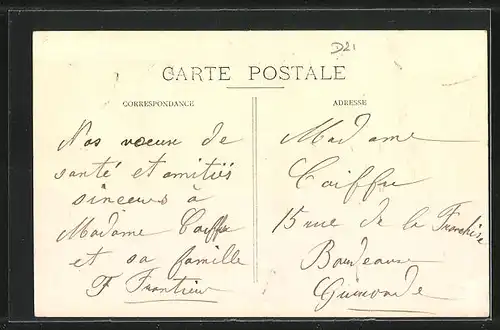 D21
CARTE POSTALE
CORRESPONDANCE
ADRESSE
Nos voeux de
santé et amitiés
sincères à
Madame Coiffu
et sa famille
F
Madame
Coiffu
15 rue de la Franchise
Bordeaux
Gironde